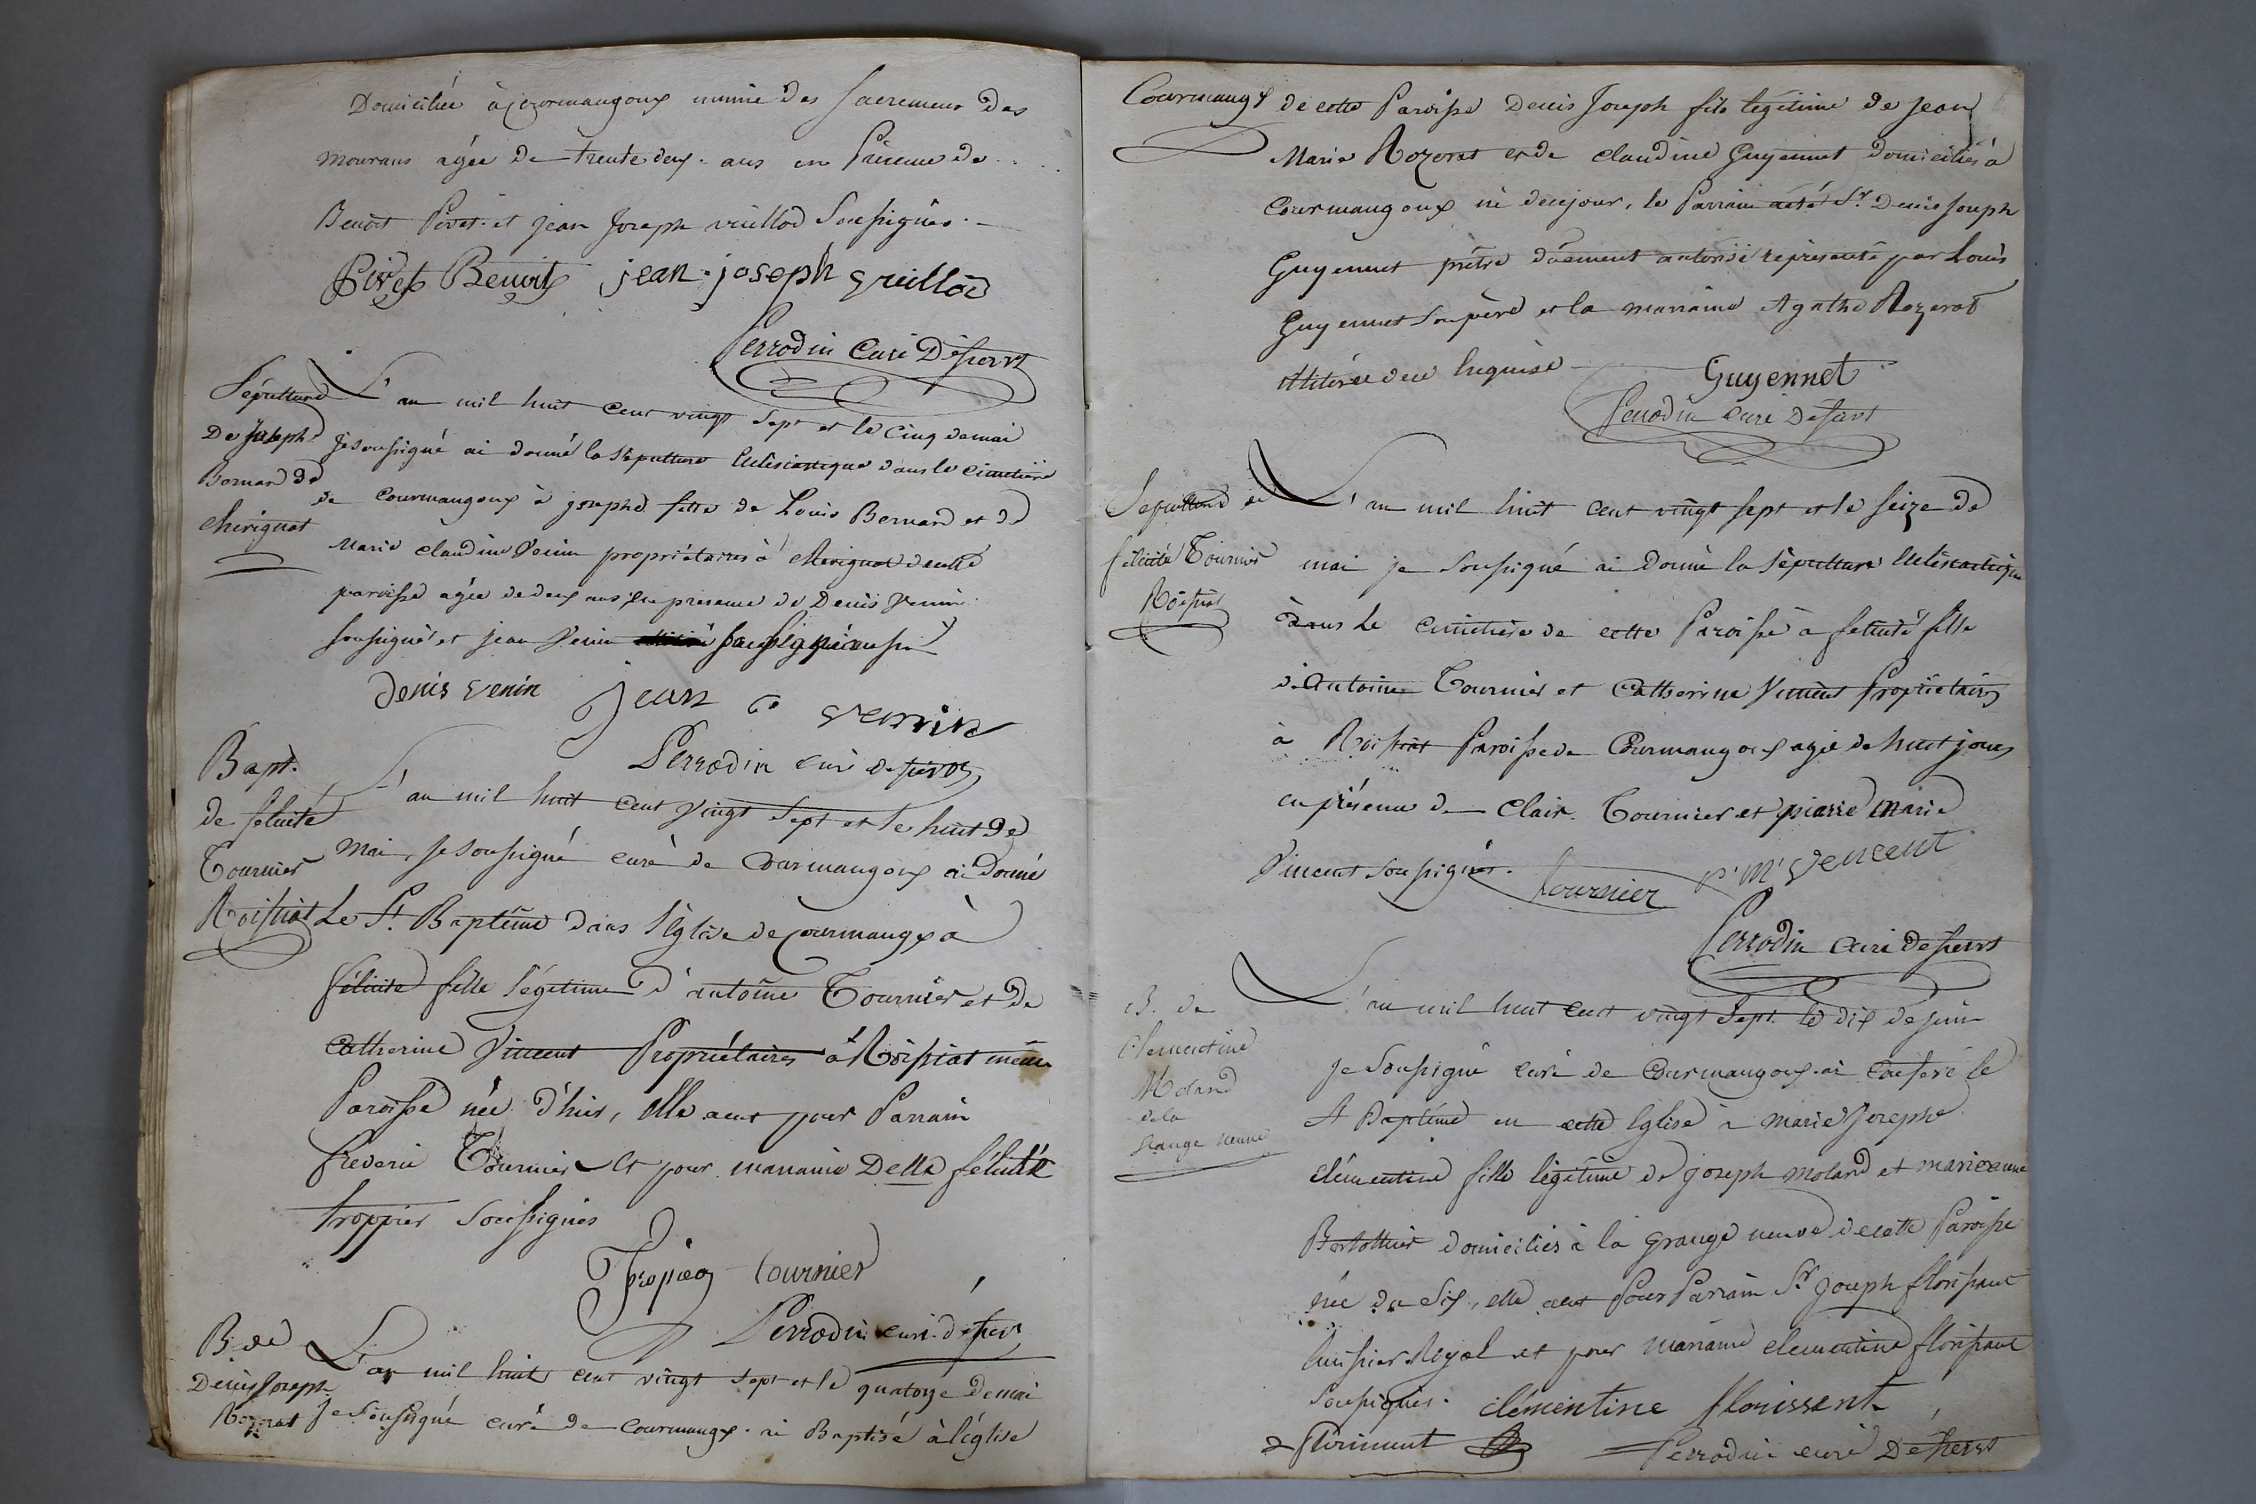 Domiciliée à Courmangoux munie des sacremens des
mourans agée de trente deux ans en Présence de
Benoit Pivet et jean Joseph vuillod Soussignés.
Pivet Benoit jean joseph vuillod
Perrodin Curé Desserv^t
Sépulture
De joseph
Bernard de
chevignat
L'an mil huit cent vingt sept et le cinq de mai
je soussigné ai donné la sépulture Eclésiastique dans le cimetière
de Courmangoux à josephe fille de Louis Bernard et de
Marie claudine Venin propriétaires à chevignat de cette
paroisse agée de deux ans en presence de Denis Venin
soussigné et jean Venin soussigné aussi
denis venin jean venin
Perrodin curé desserv^t
Bapt.
de félicité
Tournier
Roissiat
L'an mil huit cent vingt sept et le huit de
Mai, je soussigné curé de Courmangoux ai donné
Le S^t. Baptême dans l'église de Courmangx à
félicité fille légitime d'antoine Tournier et de
Catherine Vincent Propriétaires à Roissiat même
Paroisse née d'hier, elle a eut pour Parrain
frederic Tournier et pour marraine Delle félicité
troppier Soussignés
Tropier tournier
Perrodin curé desserv^t
B. de
Denis Joseph
Rozerat
L'an mil huit cent vingt sept et le quatorze de mai
je soussigné curé de Courmangx. ai Baptisé à l'église
Courmangx de cette Paroisse Denis Joseph fils légitime de jean
Marie Rozerat et de claudine Guyennet domiciliés à
Courmangoux né de ce jour, le Parrain a été S^r. Denis Joseph
Guyennet prêtre dûement autorisé représenté par Louis
Guyennet son père et la marraine Agathe Rozerat
illitérée de ce Enquise
Guyennet
Perrodin curé Desserv^t
Sepulture de
félicité Tournier
Roissiat
L'an mil huit cent vingt sept et le seize de
mai je soussigné ai donné la sépulture Eclésiastique
dans le cimetière de cette Paroisse à félicité fille
d'antoine Tournier et Catherine Vincent Propriétaires
à Roissiat Paroisse de Courmangoux agée de huit jours
en présence de Clair Tournier et pierre marie
Vincent soussignés.
tournier P. M. Vencent
Perrodin curé desservt
B. de
Clementine
Moland
de la
Grange neuve
L'an mil huit cent vingt sept le dix de juin
je soussigné curé de Courmangoux ai conféré le
S^t Baptême en cette Eglise à marie Josephe
clémentine fille légitime de joseph moland et marieanne
domiciliés à la grange neuve de cette Paroisse
née du six, elle a eut Pour Parrain S^r joseph florissant
huissier Royal et pour marraine clementine florissant
soussignés. clémentine florissent
florissent
Perrodin curé Desservt